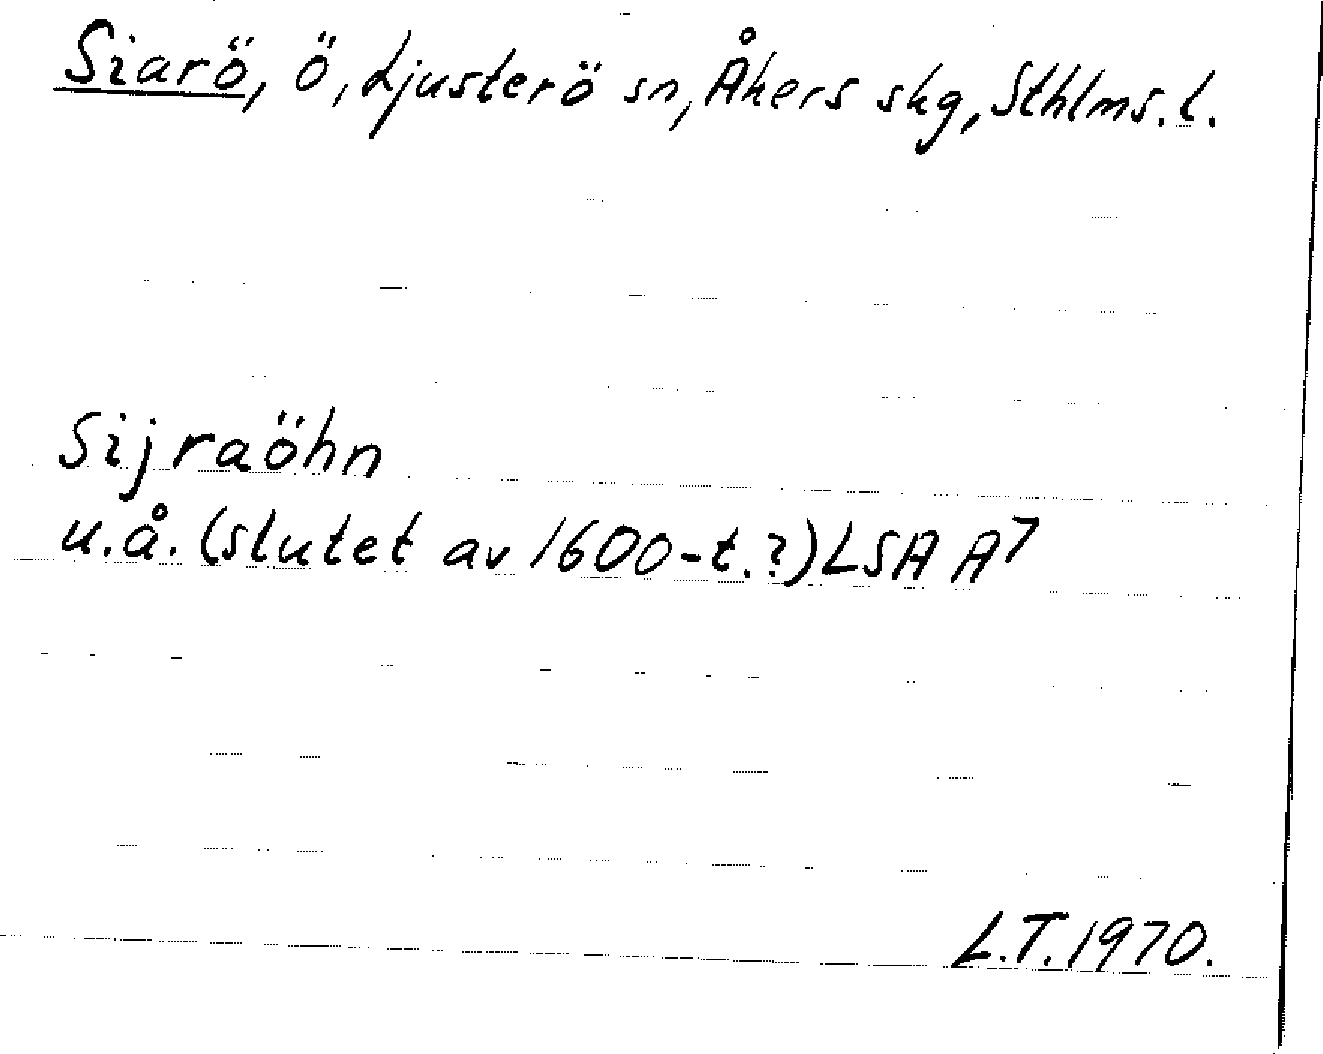 Siarö, ö, Ljusterö sn, Åkers skg, Sthlms. l.
Sijraöhn
u.å. (slutet av 1600-t.?) LSA A7
L.T. 1970.